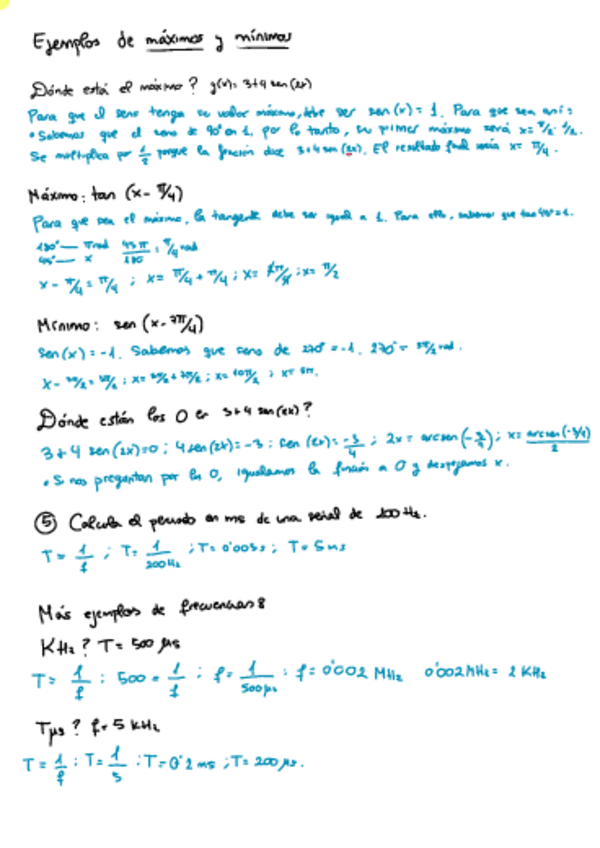 Ejemplos de máximos y mínimos
Dónde está el máximo? y(x)= 3+4 sen(2x)
Para que el seno tenga su valor máximo, debe ser sen(x) = 1. Para que sea así:
• Sabemos que el seno de 90° es 1, por lo tanto, su primer máximo será x= π/2 · 1/2.
Se multiplica por 1/2 porque la función dice 3+4 sen(2x). El resultado final sería x= π/4.
Máximo: tan (x- π/4)
Para que sea el máximo, la tangente debe ser igual a 1. Para ello, sabemos que tan 45°=1.
180° — π rad 45π/180 = π/4 rad
45° — x
x - π/4 = π/4 ; x= π/4 + π/4 ; x= ; x= π/2
Mínimo: sen (x- 7π/4)
Sen(x) = -1. Sabemos que seno de 270° = -1. 270° = 3π/2 rad.
x- ; x= ; x= 10π/2 ; x= 5π.
Dónde están los 0 en 3+4 sen(2x)?
3+4 sen(2x)=0 ; 4 sen(2x)= -3 ; sen (2x)= -3/4 ; 2x = arcsen(-3/4) ; x= arcsen(-3/4)/2
• Si nos preguntan por los 0, igualamos la función a 0 y despejamos x.
⑤ Calcula el periodo en ms de una señal de 200 Hz.
T= 1/f ; T= 1/200Hz ; T= 0'005s ; T= 5ms
Más ejemplos de frecuencias:
KHz? T= 500 μs
T= 1/f ; 500 = 1/f ; f= 1/500μs ; f= 0'002 MHz 0'002 MHz = 2 KHz
Tμs? f= 5 KHz
T= 1/f ; T= 1/5 ; T= 0'2 ms ; T= 200 μs.